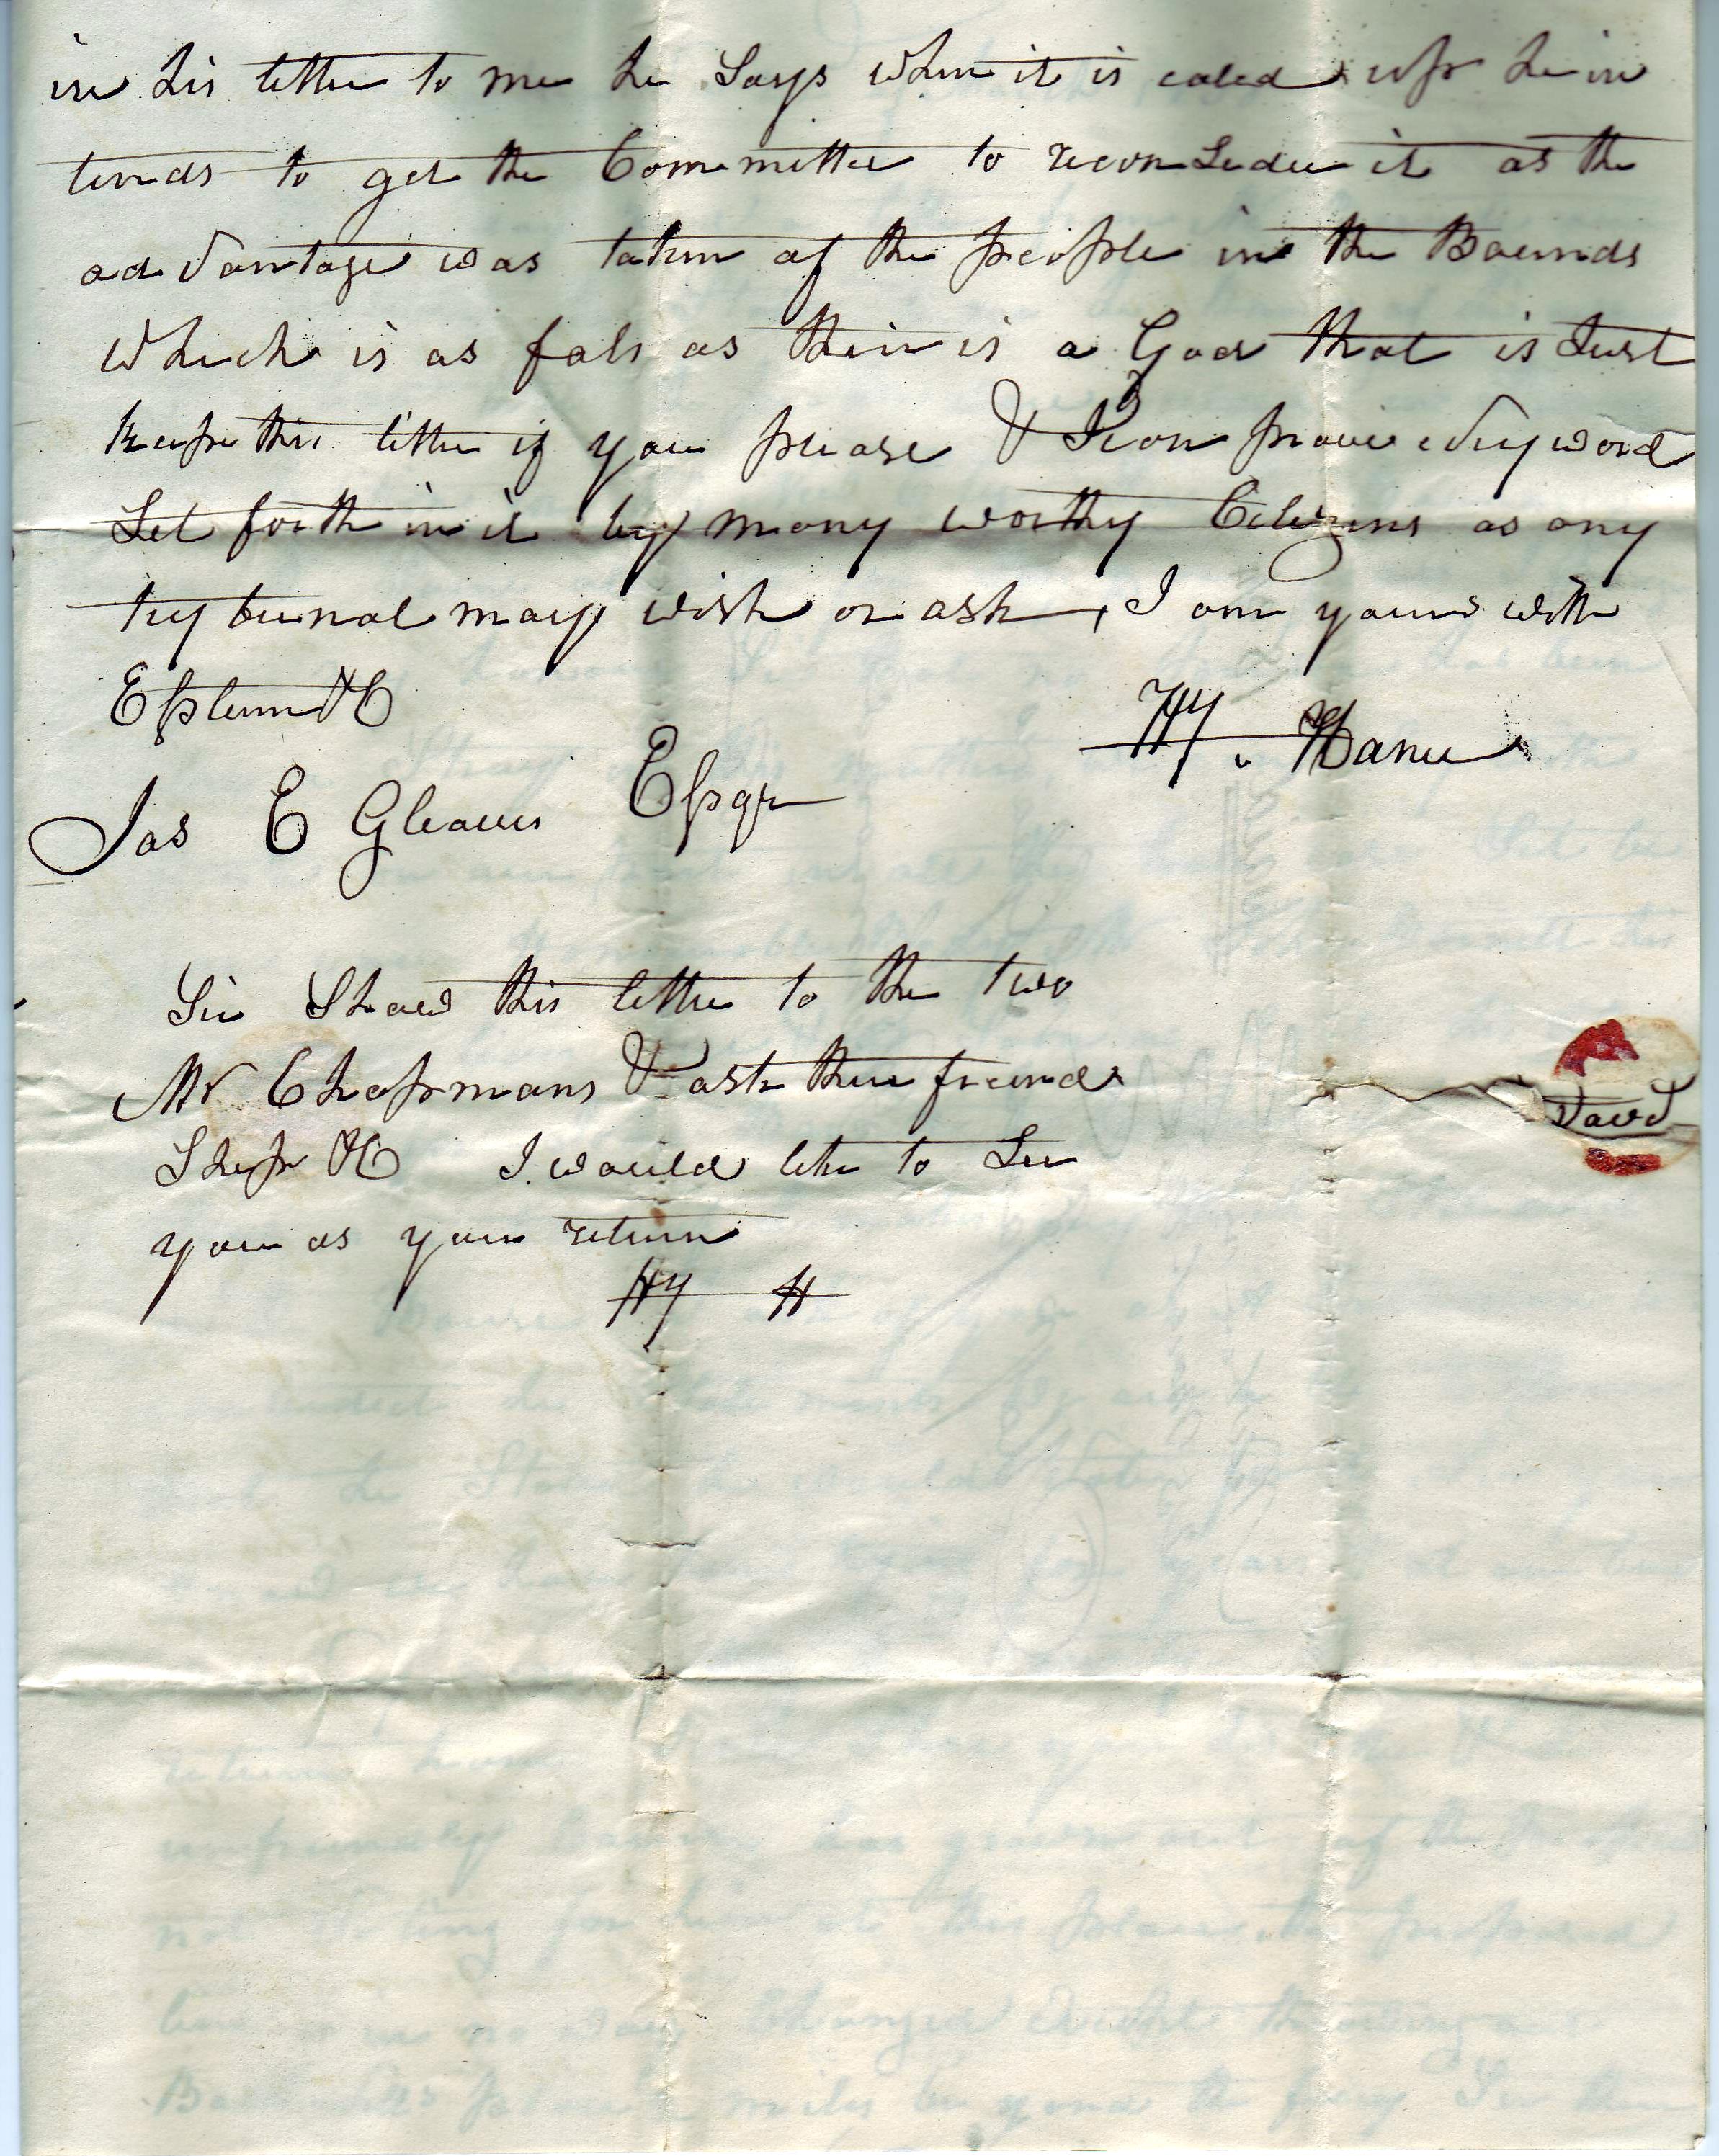 in his letter to me he Says when it is caled up he in
tends to get the Committee to reconseder it as the
advantage was taken of the people in the Bounds
which is as fals as their is a God that is Just
keepe this letter if you please & I can prove evry word
Set forth in it by many worthy Citizens as any
trybunal may wish or ask, I am yours with
Esteem &C
Hy. Hanee
Jas E Gleaves Esqr
Sir Shew this letter to the two
Mr Chapmans & ask there freind
Shep &C I would like to See
you as you return
Hy H